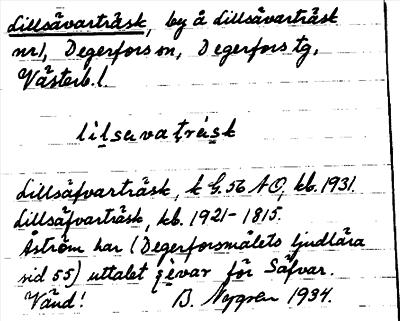 Lillsävarträsk, by å Lillsävarträsk
nr 1, Degerfors sn, Degerfors tg,
Västerb. l.
lilsevaträsk
Lillsäfvarträsk, k G. 56 NO, kb. 1931.
Lillsäfvarträsk, kb. 1921-1815.
Åström har (Degerforsmålets ljudlära
sid 55) uttalet sèvar för Säfvar.
Vänd! B. Nygren 1934.